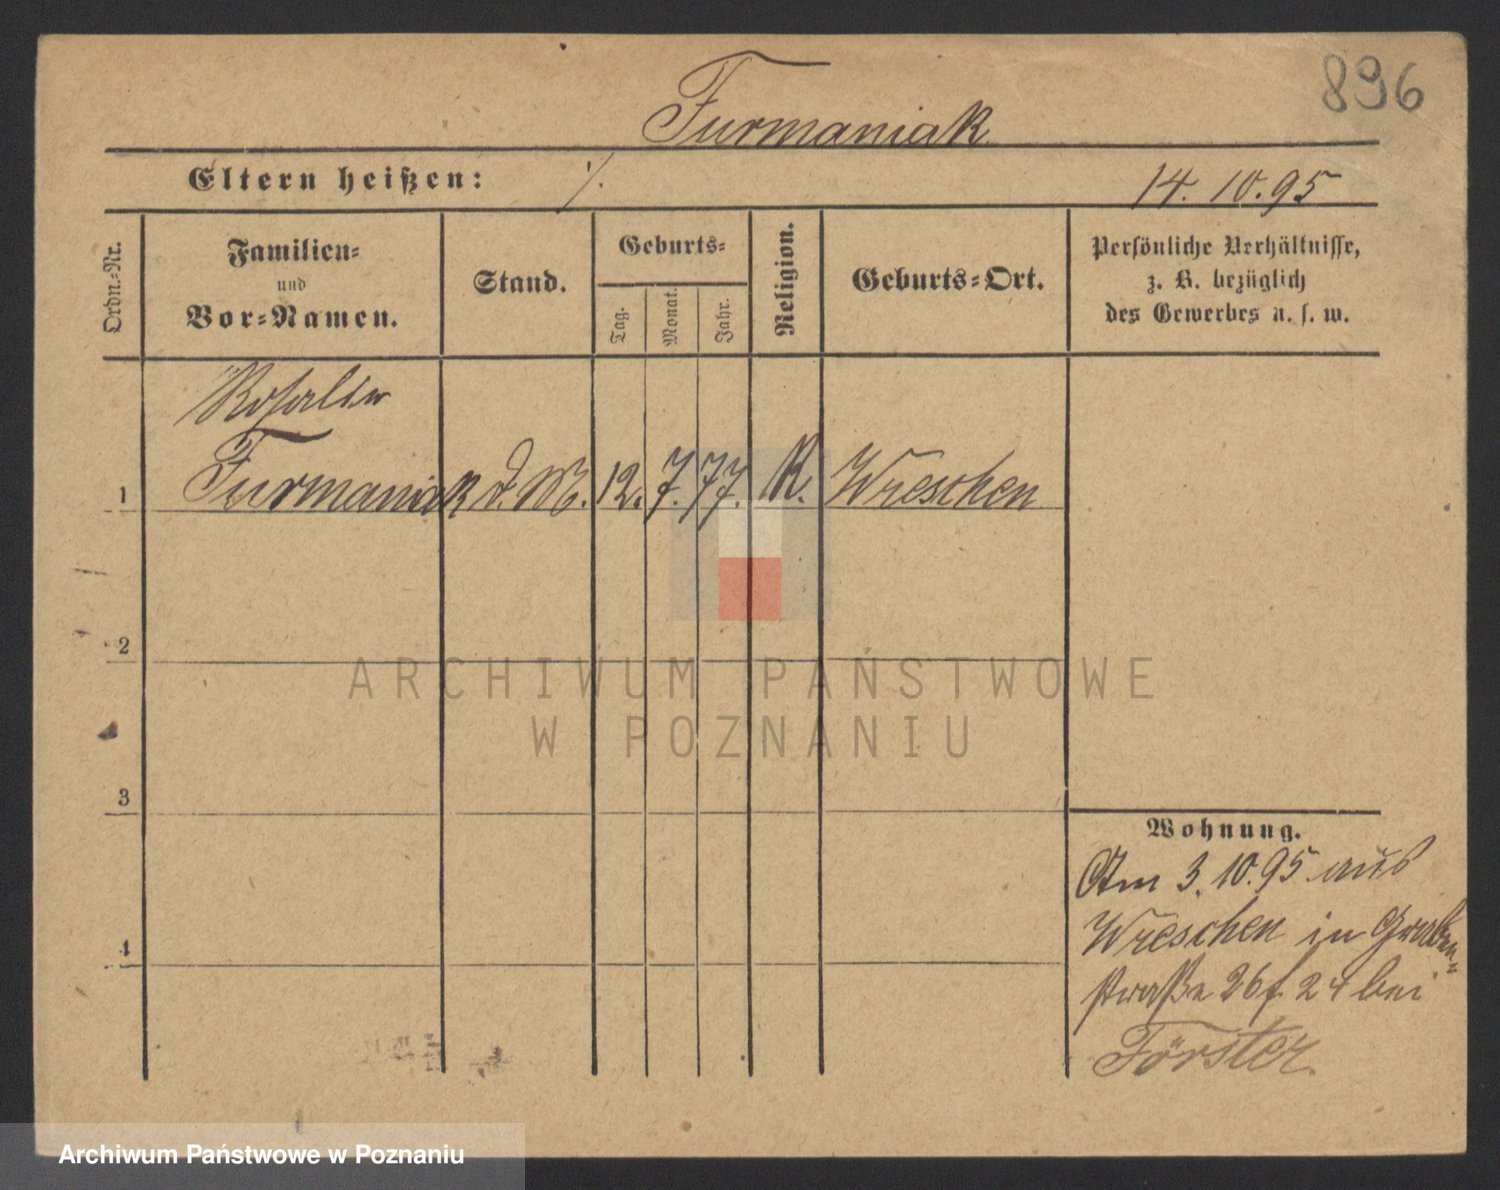 896
Furmaniak
Eltern heißen: ·/. 14. 10. 95
Ordn.-Nr.
Familien-
und
Vor-Namen.
Stand.
Geburts-
Tag.
Monat.
Jahr.
Religion.
Geburts-Ort.
Persönliche Verhältnisse,
z. B. bezüglich
des Gewerbes u. s. w.
Rosalie
1 Furmaniak d. M. 12. 7. 77. K. Wreschen
2
3
4
Wohnung.
Am 3. 10. 95 aus
Wreschen in Graben-
straße 26 f. 24 bei
Förster.
ARCHIWUM PAŃSTWOWE
W POZNANIU
Archiwum Państwowe w Poznaniu